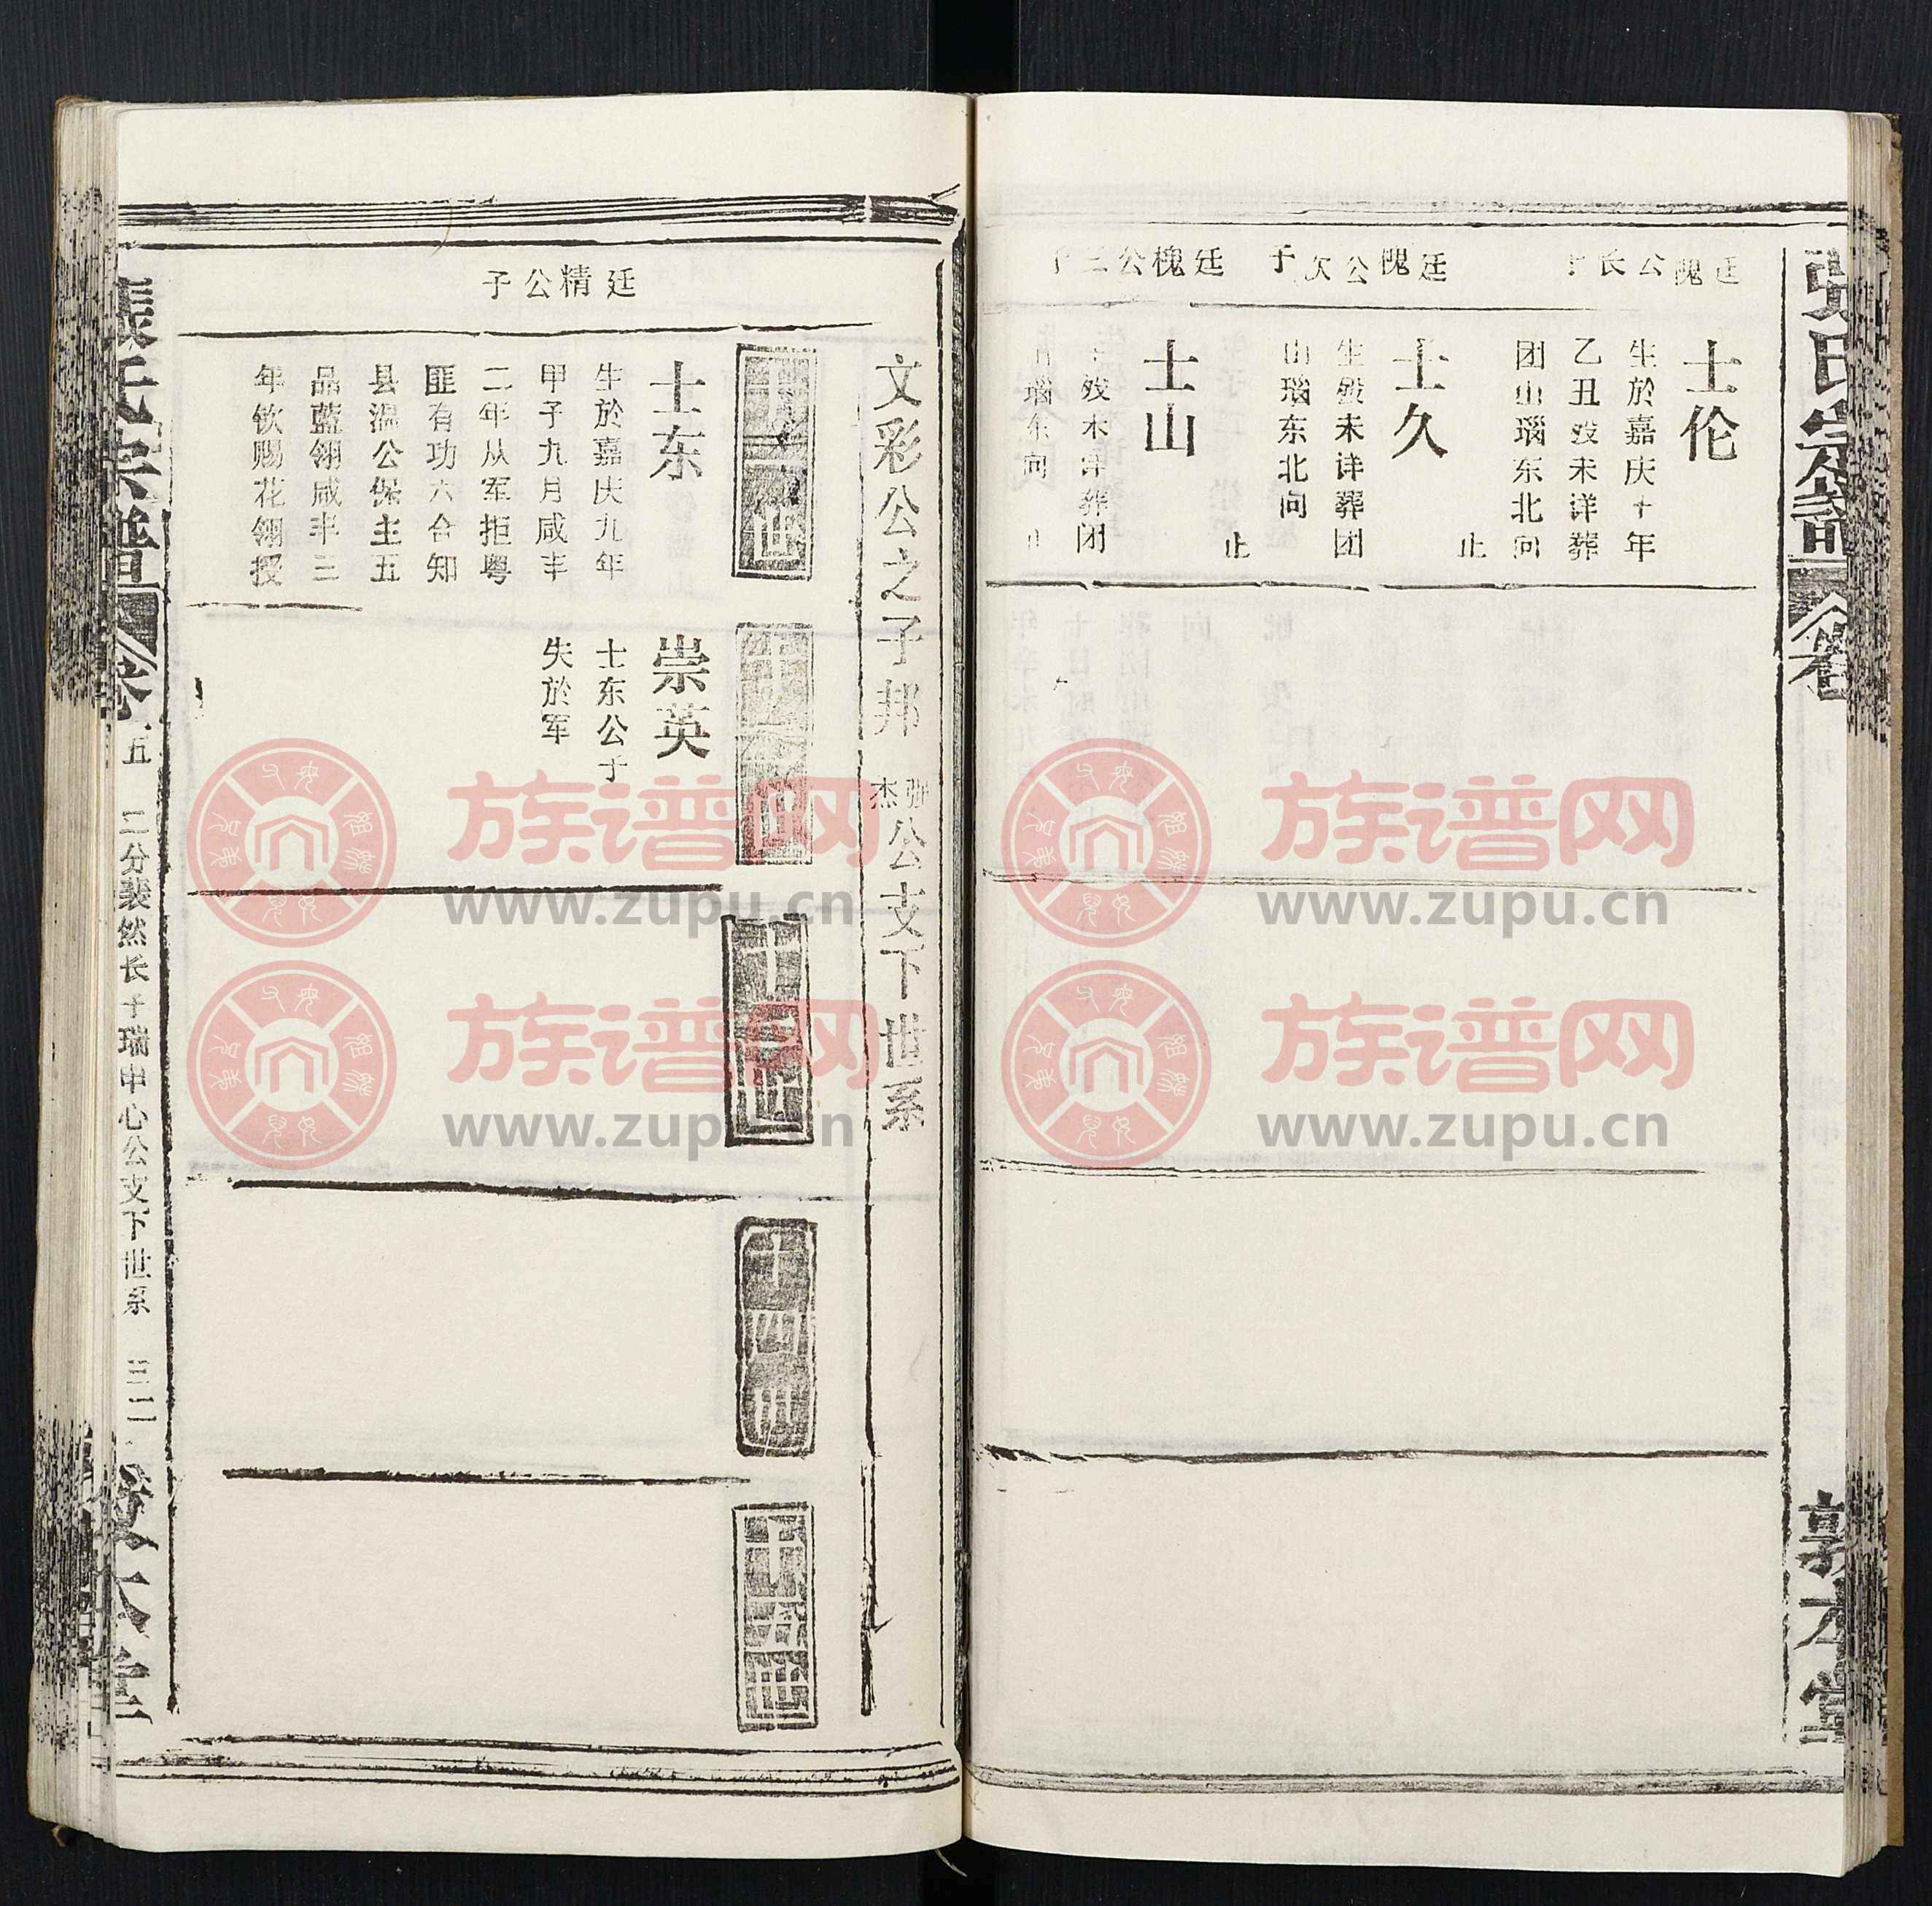 张氏宗谱
卷
敦本堂
廷槐公长子
士伦
生於嘉庆十年
乙丑殁未详葬
团山瑙东北向
止
廷槐公次子
士久
生殁未详葬团
山瑙东北向
止
廷槐公三子
士山
生殁未详葬团
山瑙东向 止
文彩公之子邦
杰公支下世系
十三世
十四世
十五世
廷精公子
士东
生於嘉庆九年
甲子九月咸丰
二年从军拒粤
匪有功六合知
县温公保主五
品蓝翎咸丰三
年钦赐花翎授
崇英
士东公子
失於军
張氏宗譜
卷五
二分裴然长子瑞中心公支下世系
三二
敦本堂
族谱网
www.zupu.cn
族谱网
www.zupu.cn
族谱网
www.zupu.cn
族谱网
www.zupu.cn